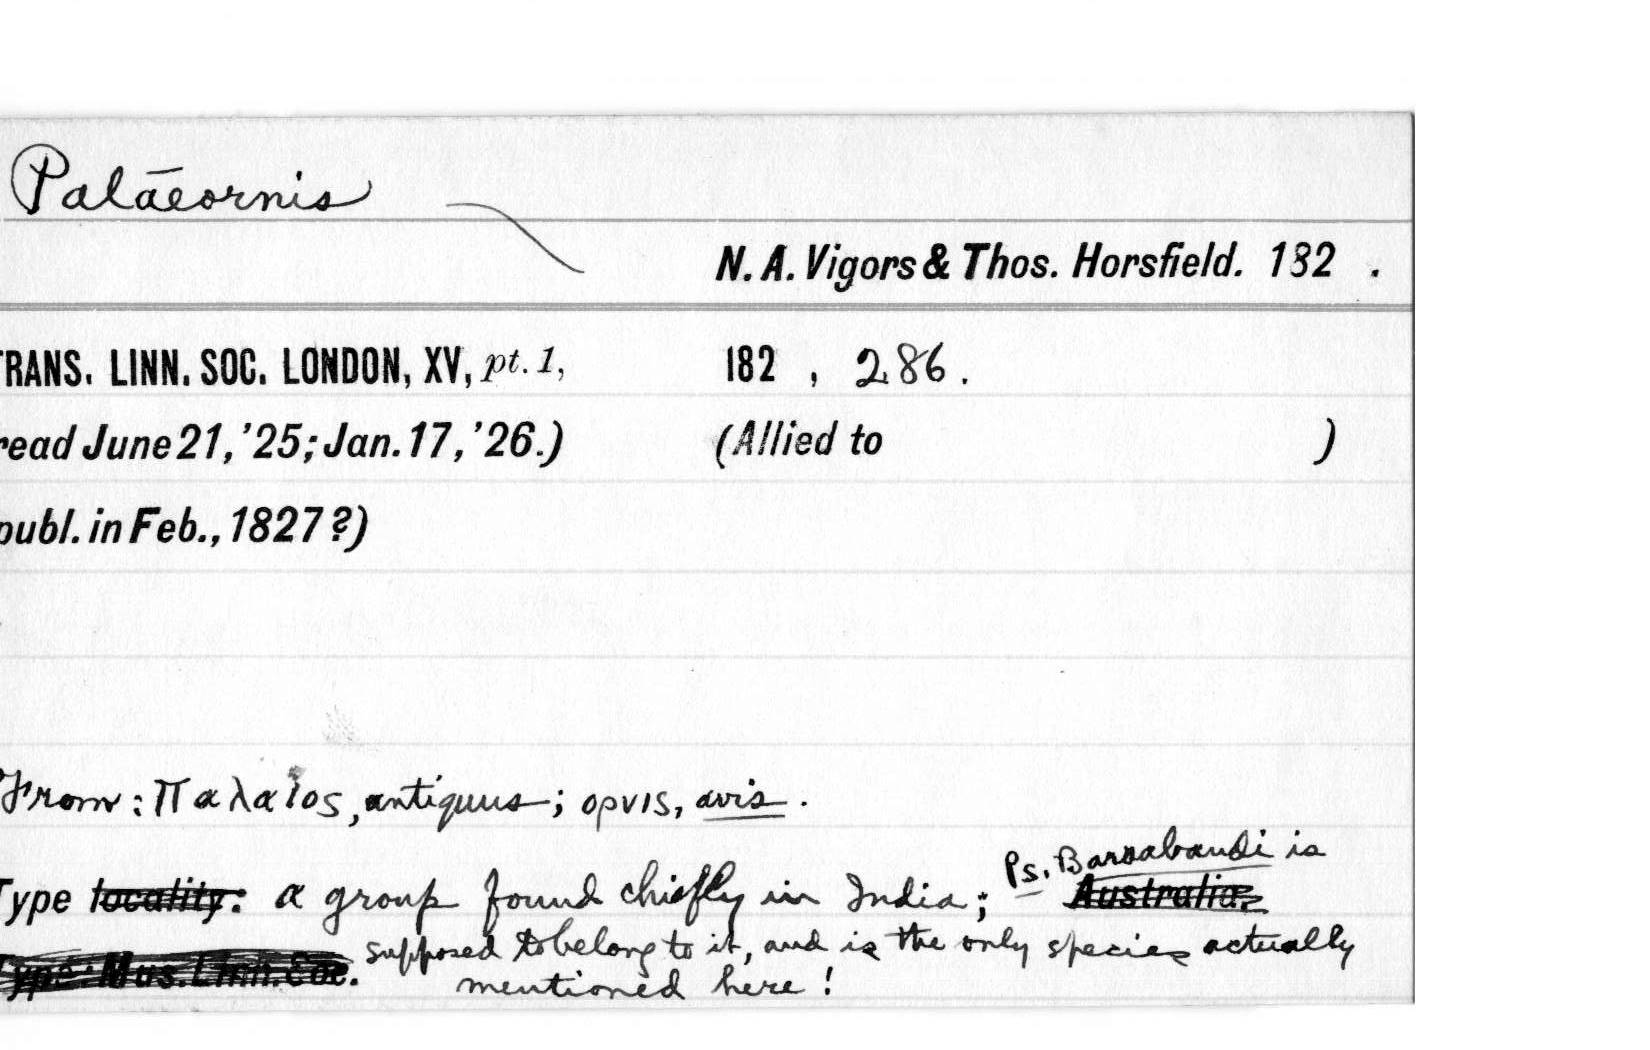 Palāeornis
N. A. Vigors & Thos. Horsfield. 182 .
TRANS. LINN. SOC. LONDON, XV, pt. 1, 182 , 286.
read June 21, '25; Jan. 17, '26.) (Allied to )
publ. in Feb., 1827 ?)
From: Παλαιος, antiquus; ορνις, avis.
Ps. Barrabandi is
Type locality: a group found chiefly in India; Australia.
Type: Mus. Linn. Soc. supposed to belong to it, and is the only species actually
mentioned here!